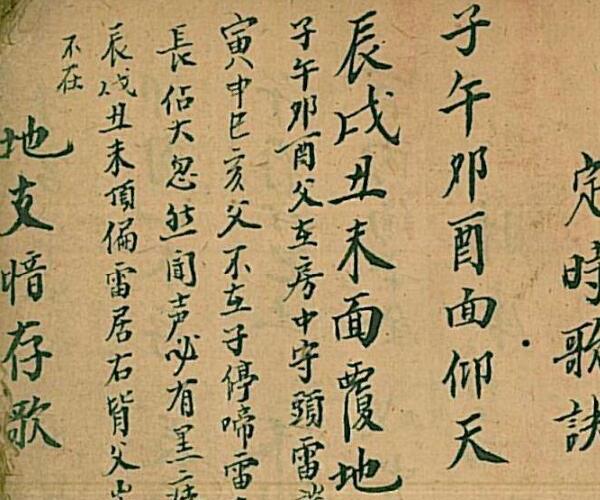 定時歌訣
子午卯酉面仰天
辰戌丑未面覆地
子午卯酉父在房中守頭雷
寅申巳亥父不在子停啼雷
長佔大忽然聞声必有黑
辰戌丑未頂偏雷居右皆父
不在
地支暗存歌